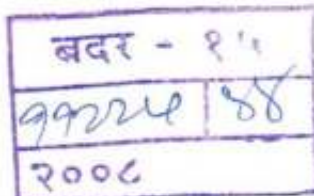 बदर - १५
११२२५ | ४४
२००८